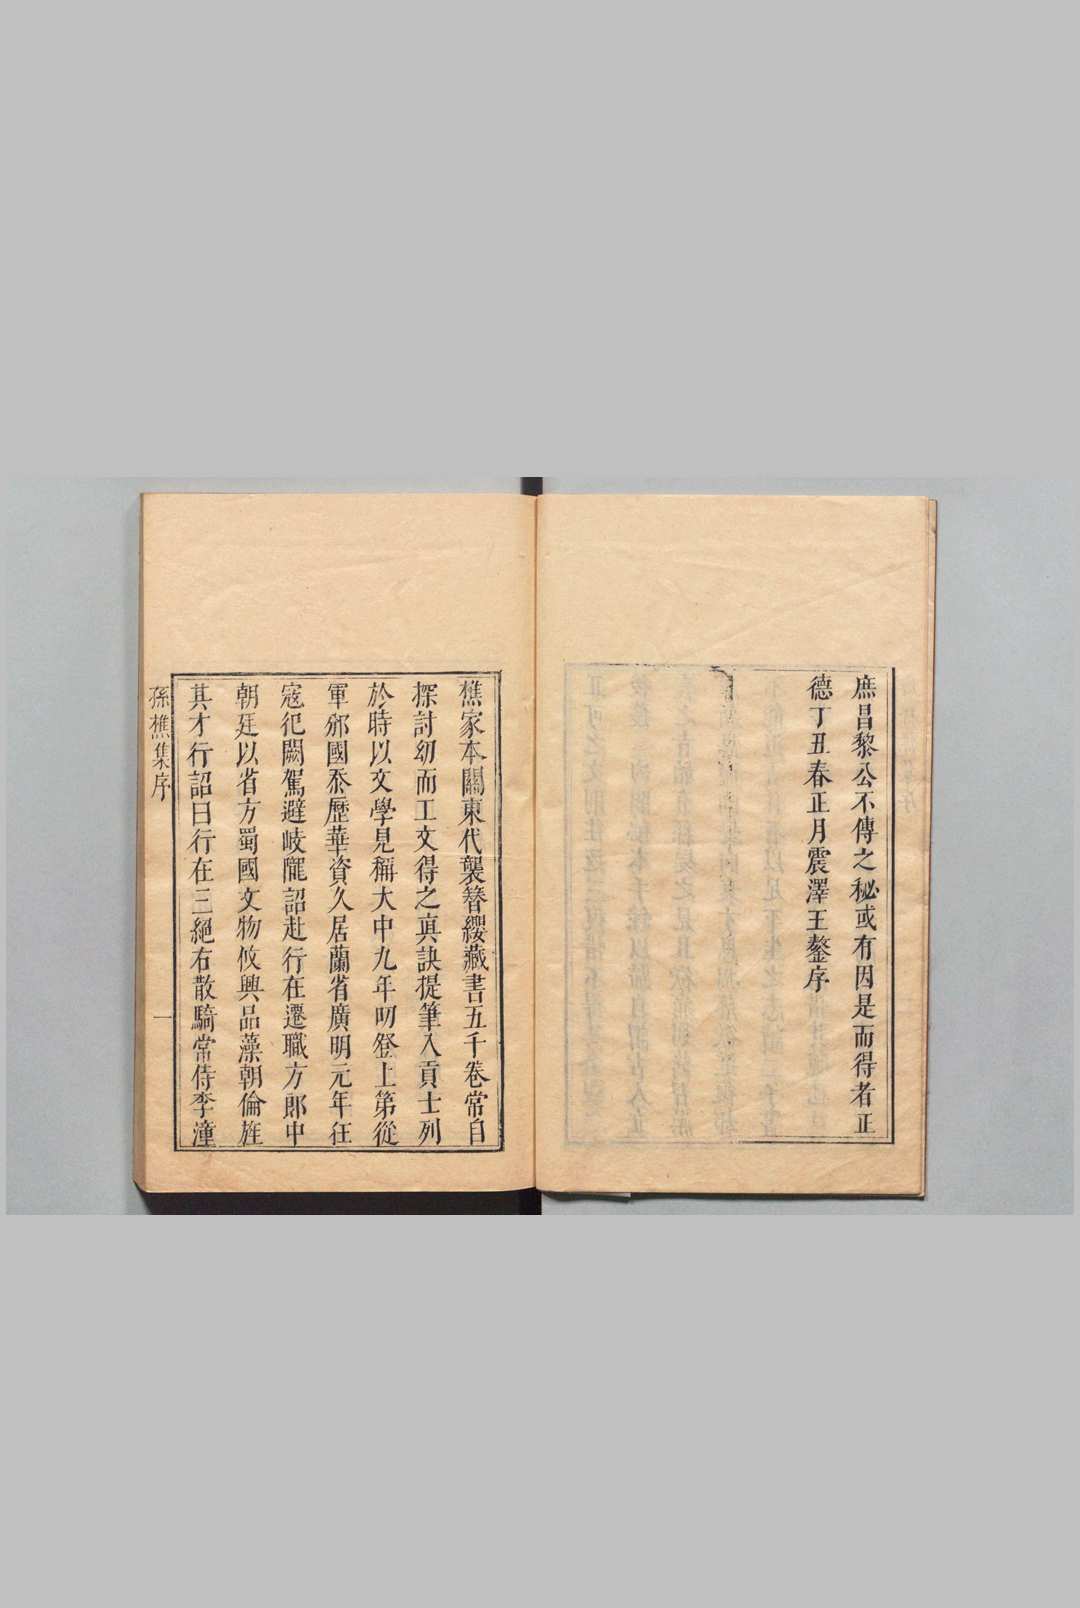 庶昌黎公不傳之秘或有因是而得者正
德丁丑春正月震澤王鏊序
樵家本關東代襲簪纓藏書五千卷常自
探討幼而工文得之眞訣提筆入貢士列
於時以文學見稱大中九年叨登上第從
軍邠國忝歷華資久居蘭省廣明元年狂
寇犯闕駕避岐隴詔赴行在遷職方郎中
朝廷以省方蜀國文物攸興品藻朝倫旌
其才行詔曰行在三絕右散騎常侍李潼
孫樵集序
一